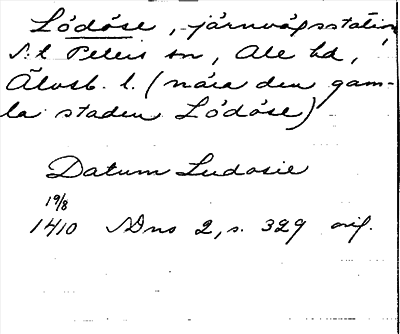 Lödöse, järnvägsstation
S:t Peters sn, Ale hd,
Älvsb. l. (nära den gam-
la staden Lödöse)
Datum Ludosie
19/8
1410 SDns 2, s. 329 orig.